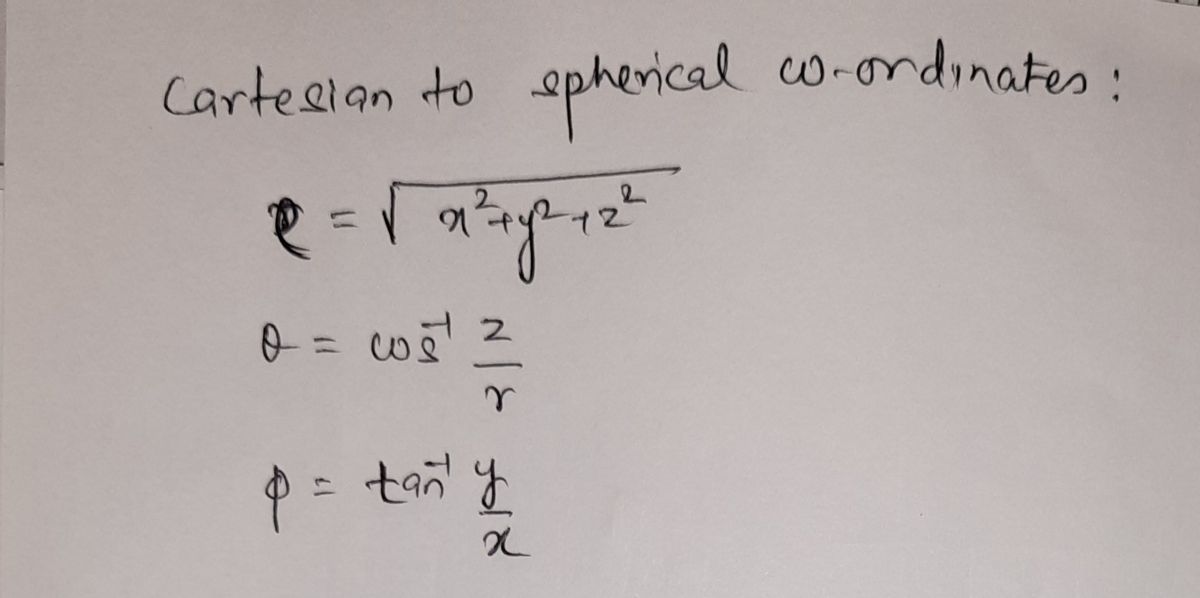 Cartesian to spherical co-ordinates:
r = √x²+y²+z²
θ = cos⁻¹ z/r
φ = tan⁻¹ y/x